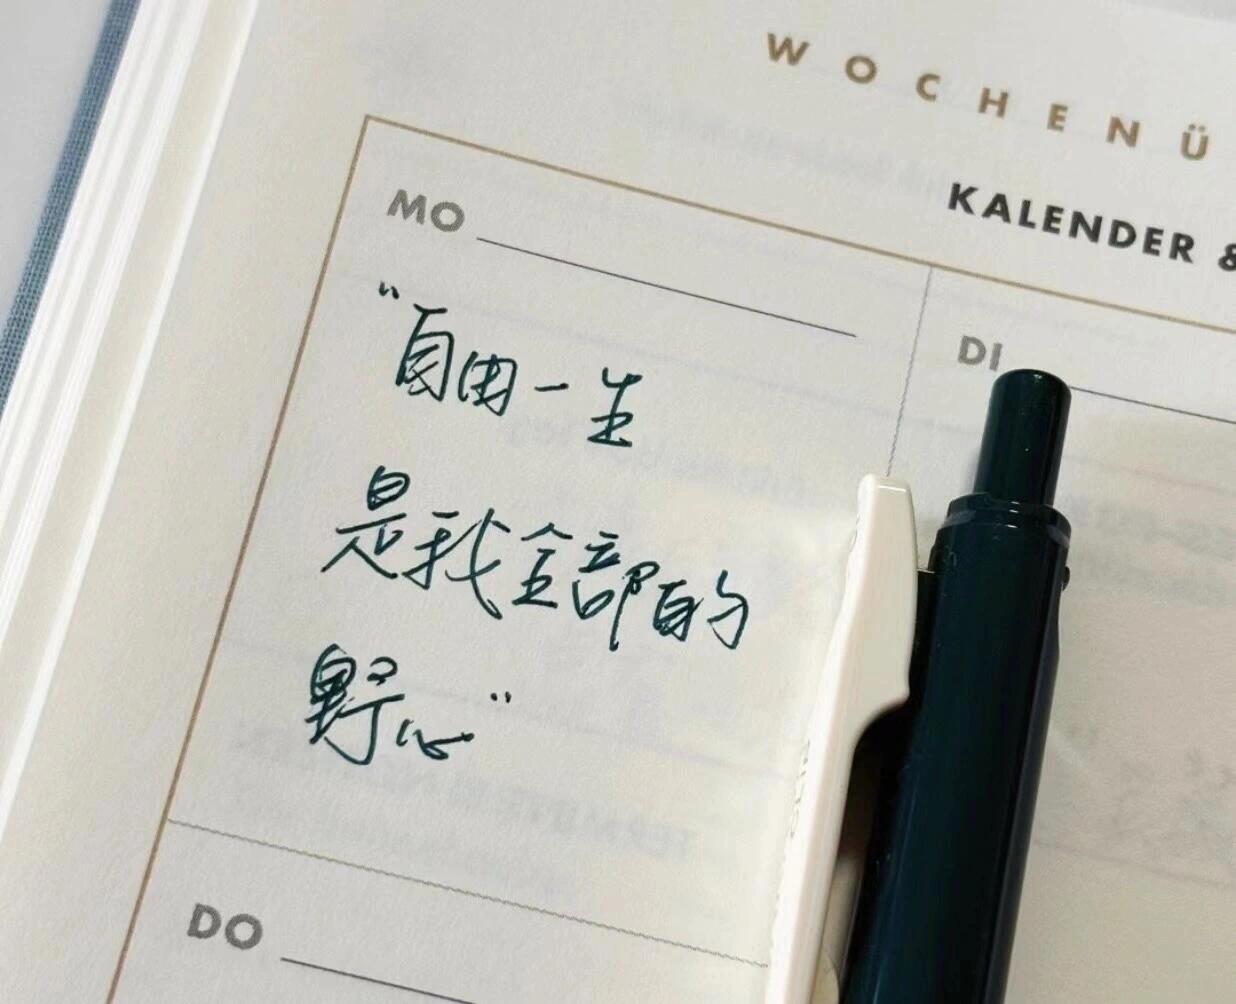 WOCHENÜ
KALENDER &
MO
"自由一生
是我全部的
野心"
DI
DO